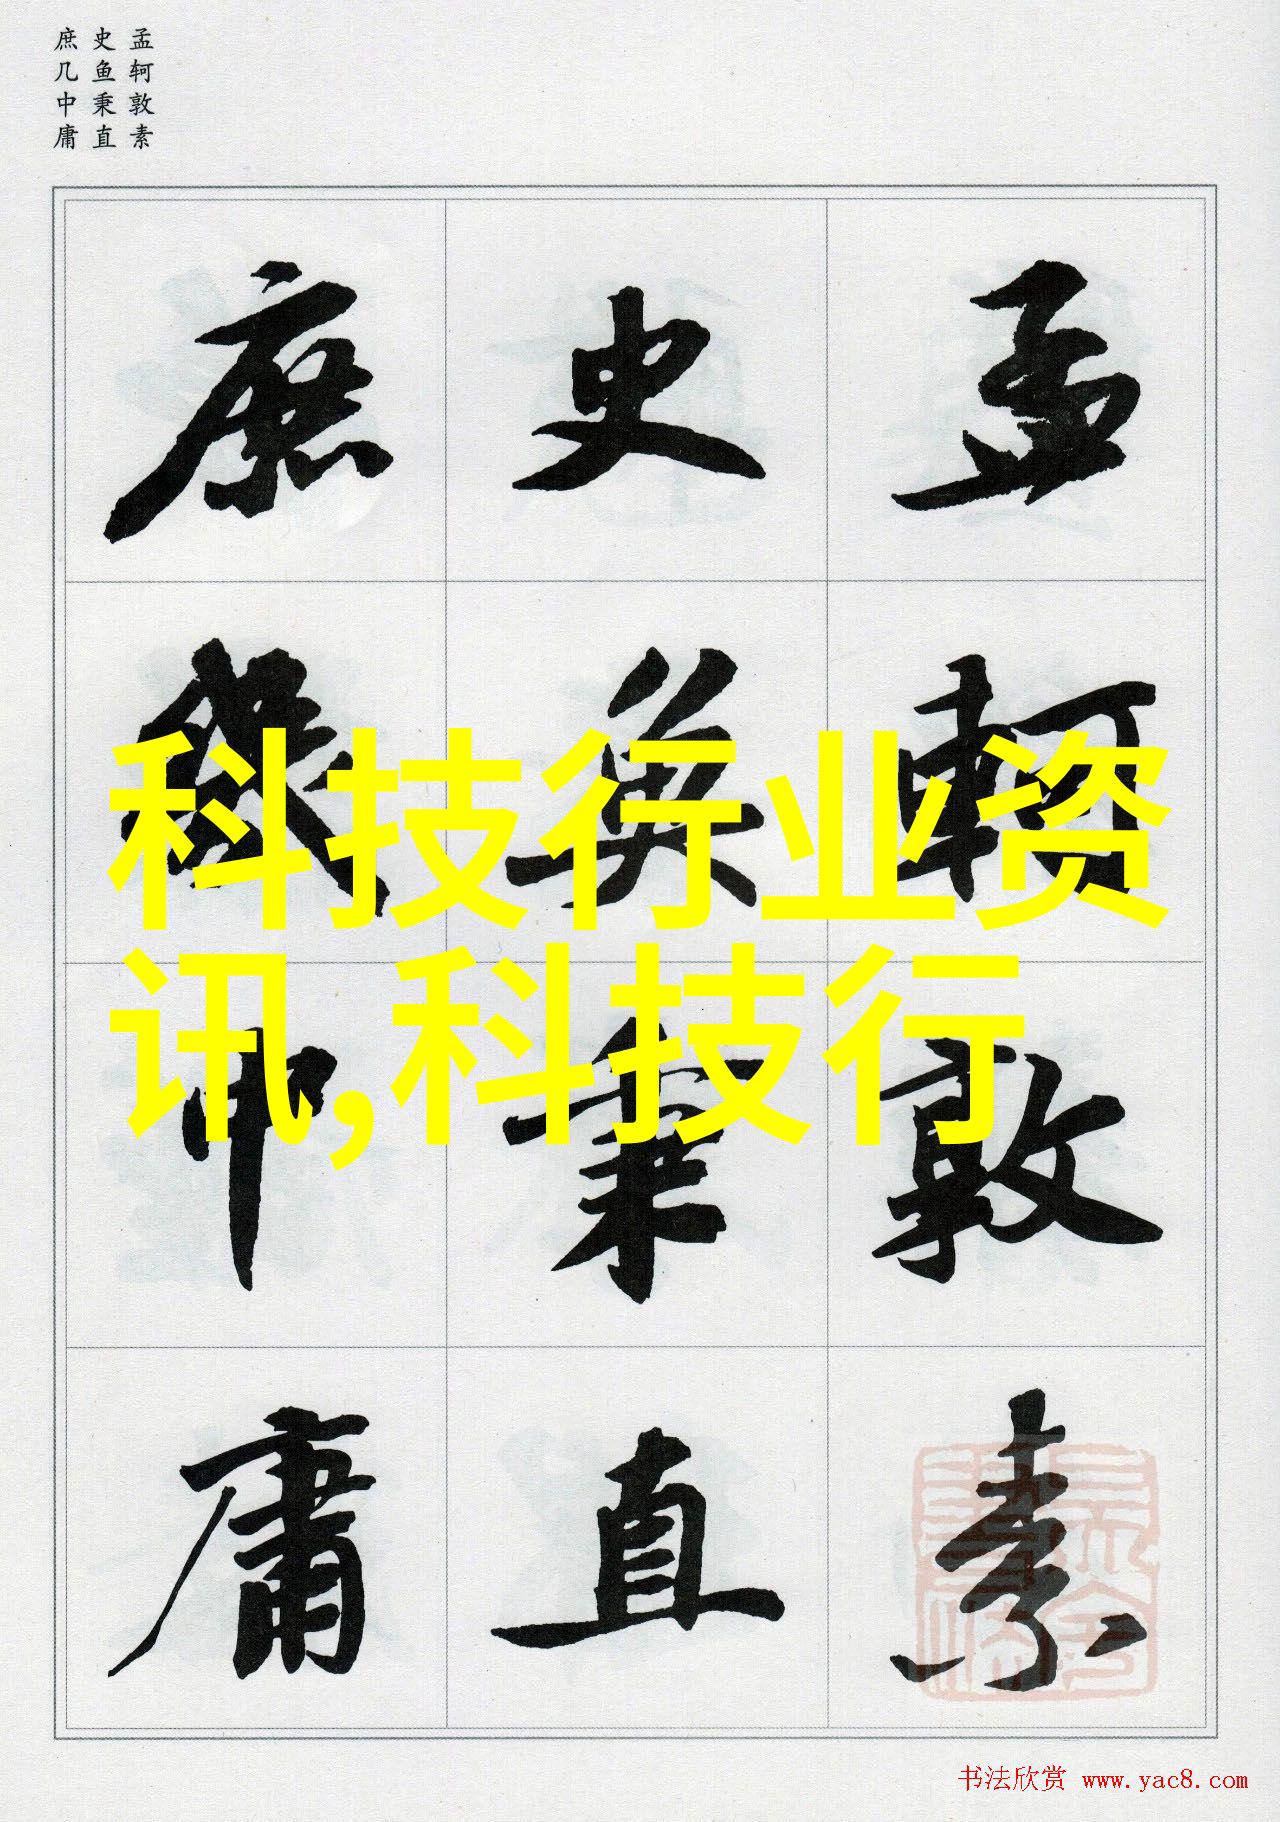 孟轲敦素
史鱼秉直
庶几中庸
孟軻敦素
史魚秉直
庶幾中庸
科技行业资
讯,科技行
书法欣赏 www.yac8.com